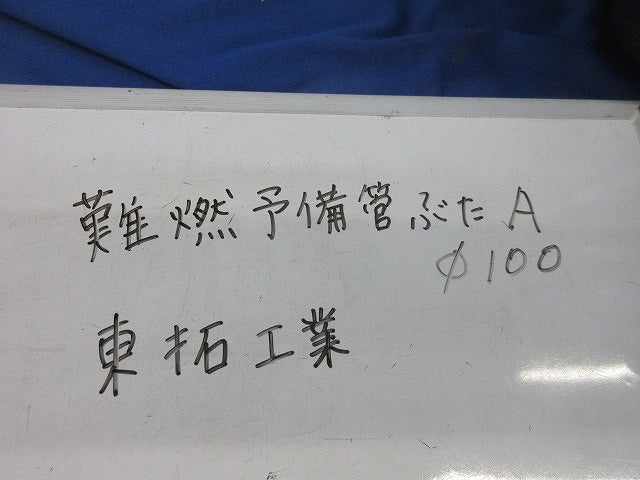 難燃予備管ぶたA
φ100
東拓工業